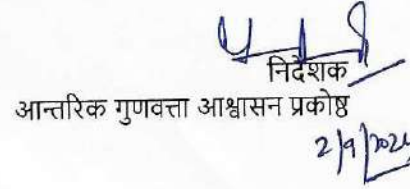 निदेशक
आन्तरिक गुणवत्ता आश्वासन प्रकोष्ठ